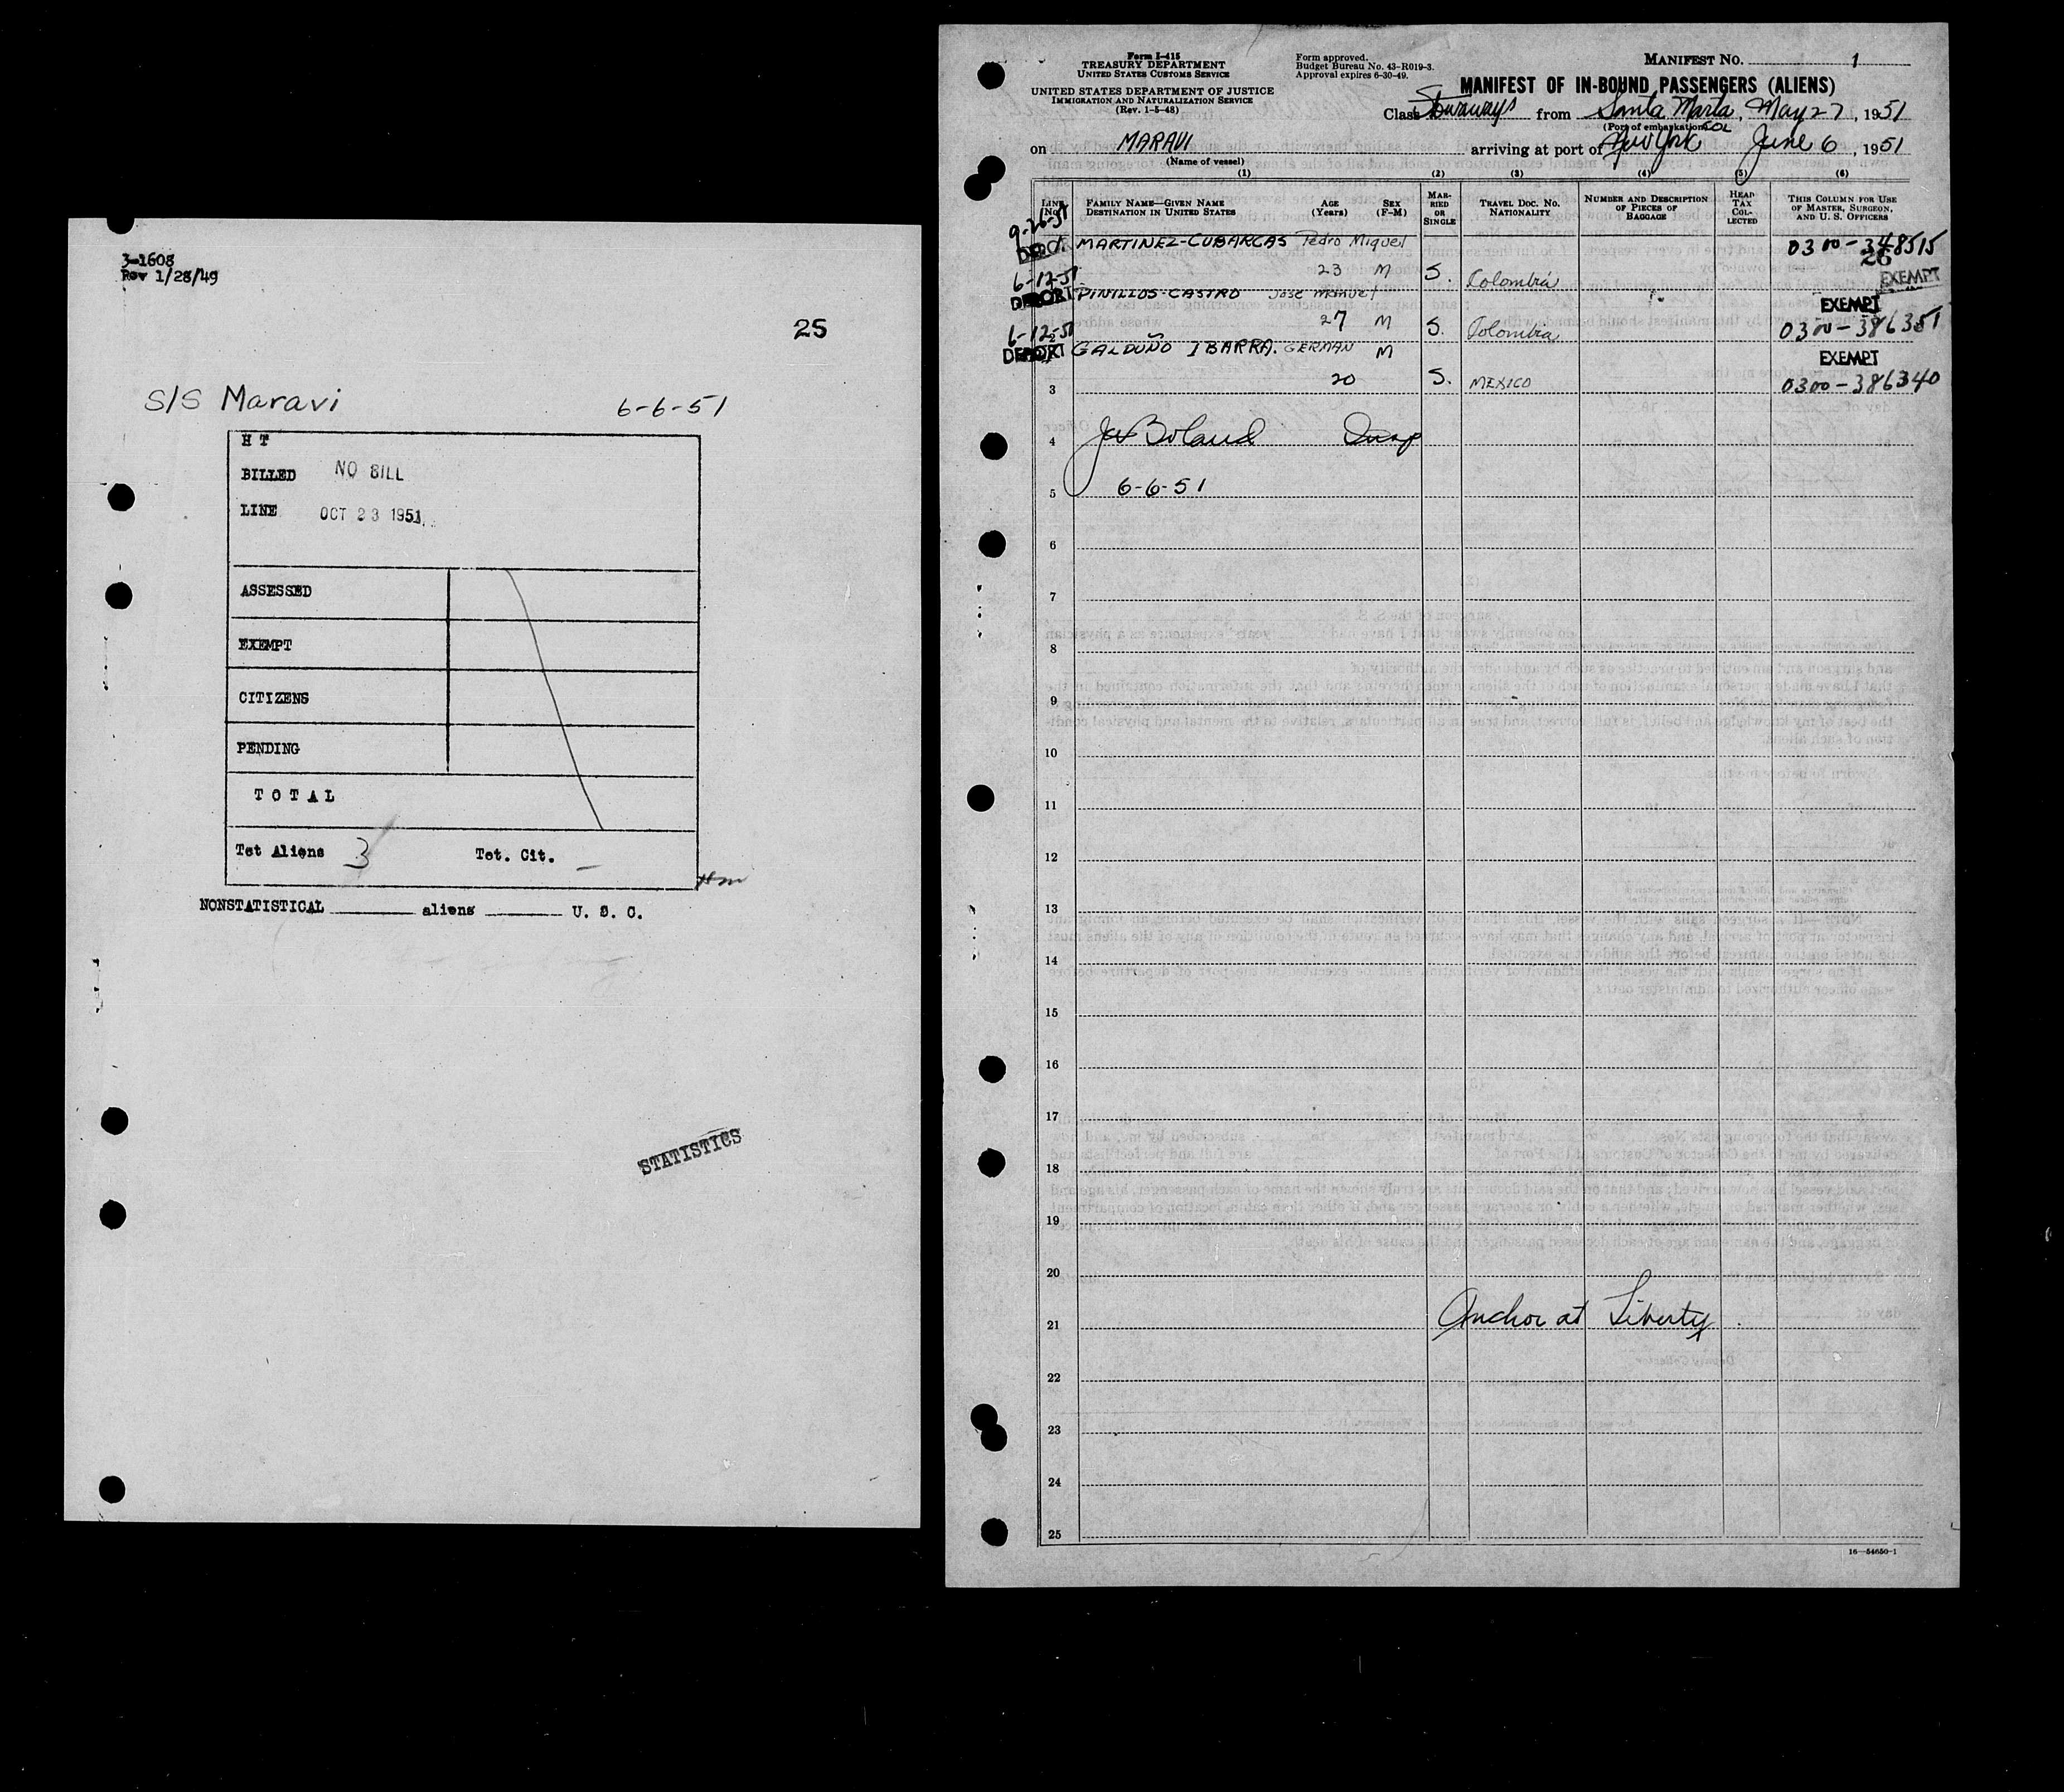 3-1608
Rev 1/28/49
25
S/S Maravi 6-6-51
H T
BILLED NO BILL
LINE OCT 23 1951
ASSESSED
EXEMPT
CITIZENS
PENDING
T O T A L
Tot Aliens 3 Tot. Cit. –
NONSTATISTICAL ______ aliens ______ U. S. C.
STATISTICS
Form I-415
TREASURY DEPARTMENT
UNITED STATES CUSTOMS SERVICE
UNITED STATES DEPARTMENT OF JUSTICE
IMMIGRATION AND NATURALIZATION SERVICE
(Rev. 1-5-48)
Form approved.
Budget Bureau No. 43-R019-3.
Approval expires 6-30-49.
MANIFEST NO. 1
MANIFEST OF IN-BOUND PASSENGERS (ALIENS)
Class Stowaways from Santa Marta, May 27, 1951
(Port of embarkation) COL
on MARAVI arriving at port of New York June 6, 1951
(Name of vessel)
(1) (2) (3) (4) (5) (6)
LINE NO.
FAMILY NAME—GIVEN NAME
DESTINATION IN UNITED STATES
AGE (Years)
SEX (F-M)
MARRIED OR SINGLE
TRAVEL DOC. NO.
NATIONALITY
NUMBER AND DESCRIPTION OF PIECES OF BAGGAGE
HEAD TAX COLLECTED
THIS COLUMN FOR USE OF MASTER, SURGEON, AND U. S. OFFICERS
9-26-51
DEPORT MARTINEZ-CUBARCAS Pedro Miguel 0300-348515
26
6-12-51 23 M S. Colombia EXEMPT
DEPORT PINILLOS-CASTRO Jose Manuel EXEMPT
6-12-51 27 M S. Colombia 0300-386351
DEPORT GALDUÑO IBARRA. GERMAN M EXEMPT
3 20 S. MEXICO 0300-386340
4 Boland Insp
5 6-6-51
6
7
8
9
10
11
12
13
14
15
16
17
18
19
20
21 Anchor at Liberty
22
23
24
25
16—54650-1